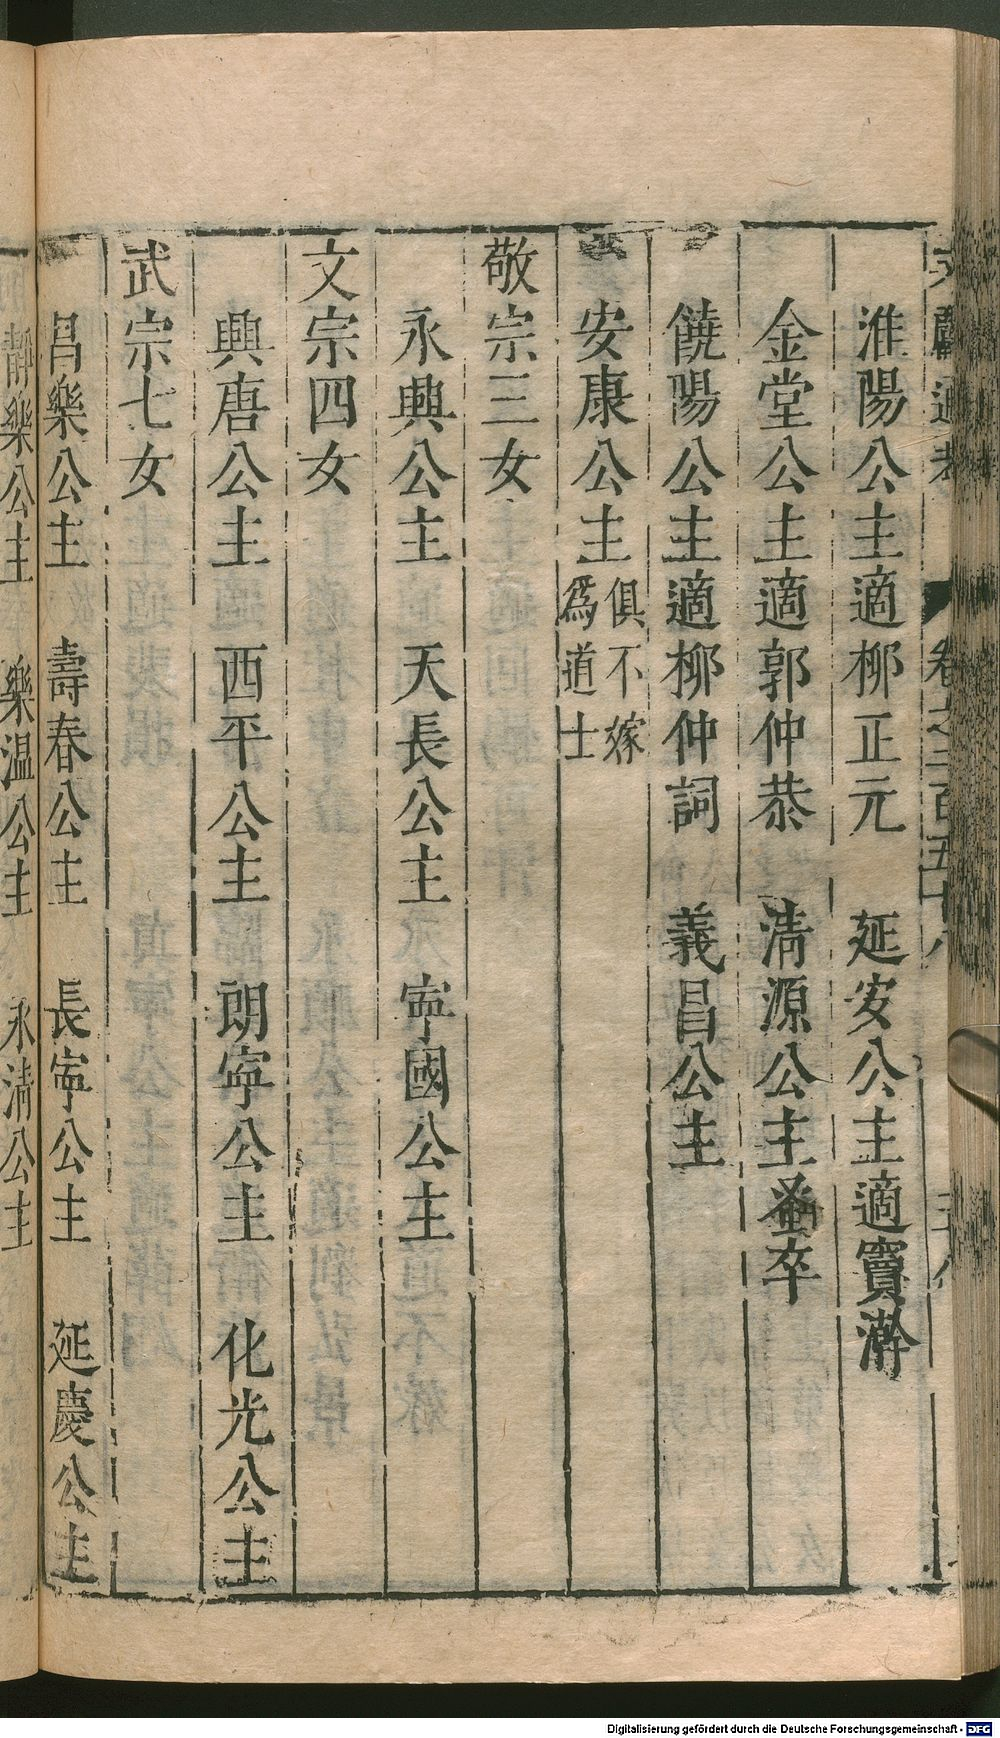 文獻通考 卷之二百五十八
淮陽公主適柳正元 延安公主適竇澣
金堂公主適郭仲恭 淸源公主蚤卒
饒陽公主適柳仲詞 義昌公主
安康公主俱不嫁
爲道士
敬宗三女
永興公主 天長公主 寕國公主
文宗四女
興唐公主 西平公主 朗寕公主 化光公主
武宗七女
昌樂公主 壽春公主 長寕公主 延慶公主
靜樂公主 樂温公主 永淸公主
Digitalisierung gefördert durch die Deutsche Forschungsgemeinschaft - DFG